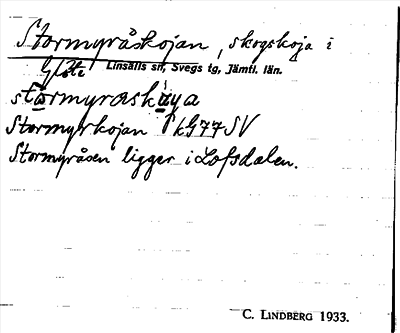 Stormyråskojan, skogskoja i
Glöte Linsälls sn, Svegs tg, Jämtl. län.
stormyraskåya
Stormyrkojan kG77SV
Stormyråsen ligger i Lofsdalen.
C. LINDBERG 1933.